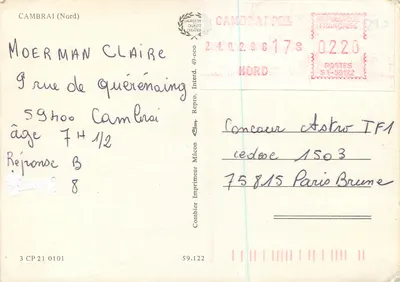 CAMBRAI (Nord)
MOERMAN CLAIRE
9 rue de Quérénaing
59400 Cambrai
âge 7 H 1/2
Réponse B
8
3 CP 21 0101
59.122
Combier Imprimeur Mâcon
Repro. Interd.
CAMBRAI PPAL
24.02.86 17H
NORD
RÉPUBLIQUE FRANÇAISE
0220
POSTES
Concour Astro TF1
cedexe 1503
75815 Paris Brune